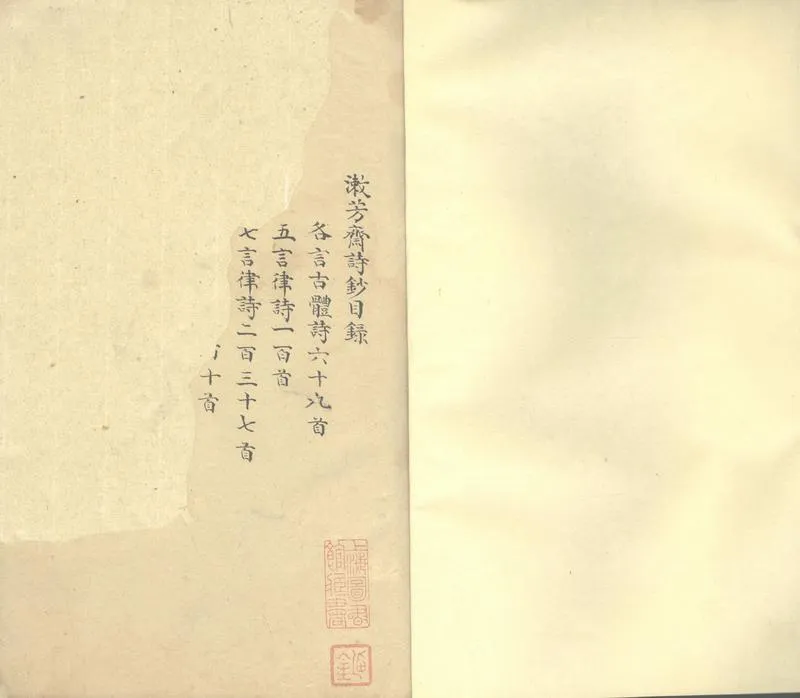 潄芳齋詩鈔目錄
各言古體詩六十九首
五言律詩一百首
七言律詩二百三十七首
十首
上海圖書
館藏書